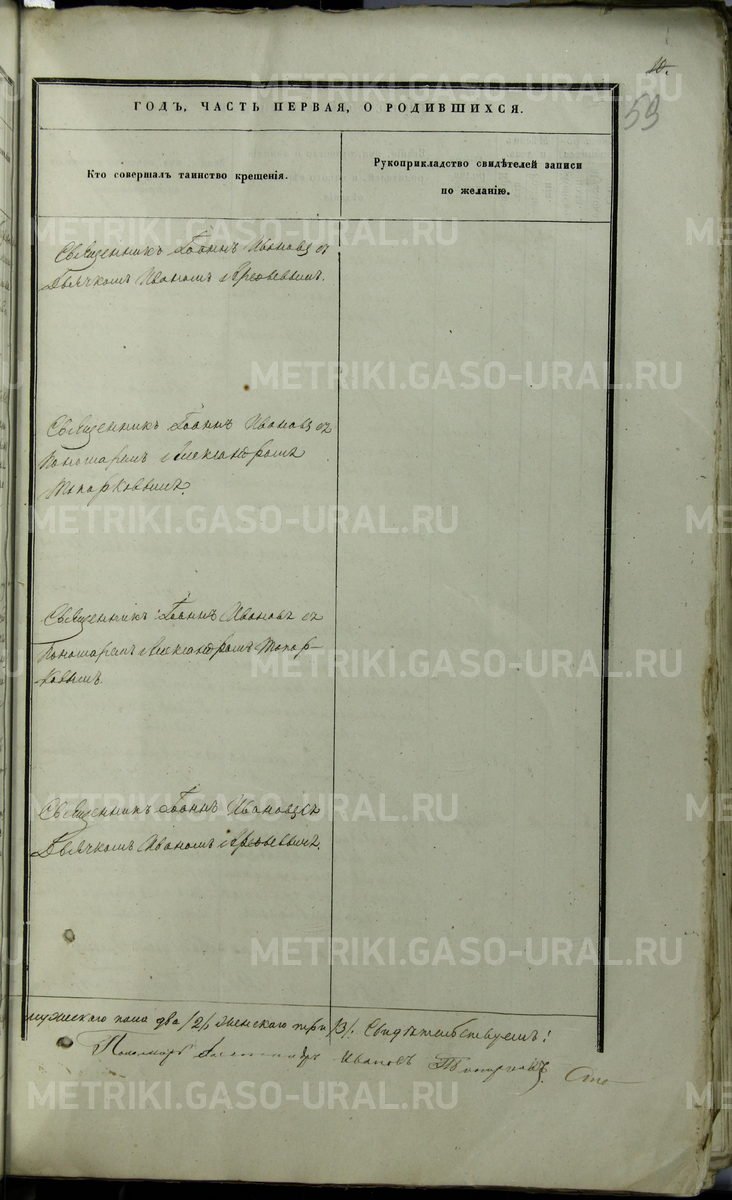 10.
59
ГОДЪ, ЧАСТЬ ПЕРВАЯ, О РОДИВШИХСЯ.
Кто совершалъ таинство крещенія.
Рукоприкладство свидѣтелей записи
по желанію.
Священникъ Іоаннъ Ивановъ съ
Дьячкомъ Иваномъ
Священникъ Іоаннъ Ивановъ съ
Пономаремъ Александромъ
Топорковымъ.
Священникъ Іоаннъ Ивановъ съ
Пономаремъ Александромъ Топор-
ковымъ.
Священникъ Іоаннъ Ивановъ съ
Дьячкомъ Иваномъ
мужескаго пола два /2/ женскаго три /3/. Свидѣтельствуемъ:
Пономарь Александръ Ивановъ Топорковъ.
METRIKI.GASO-URAL.RU